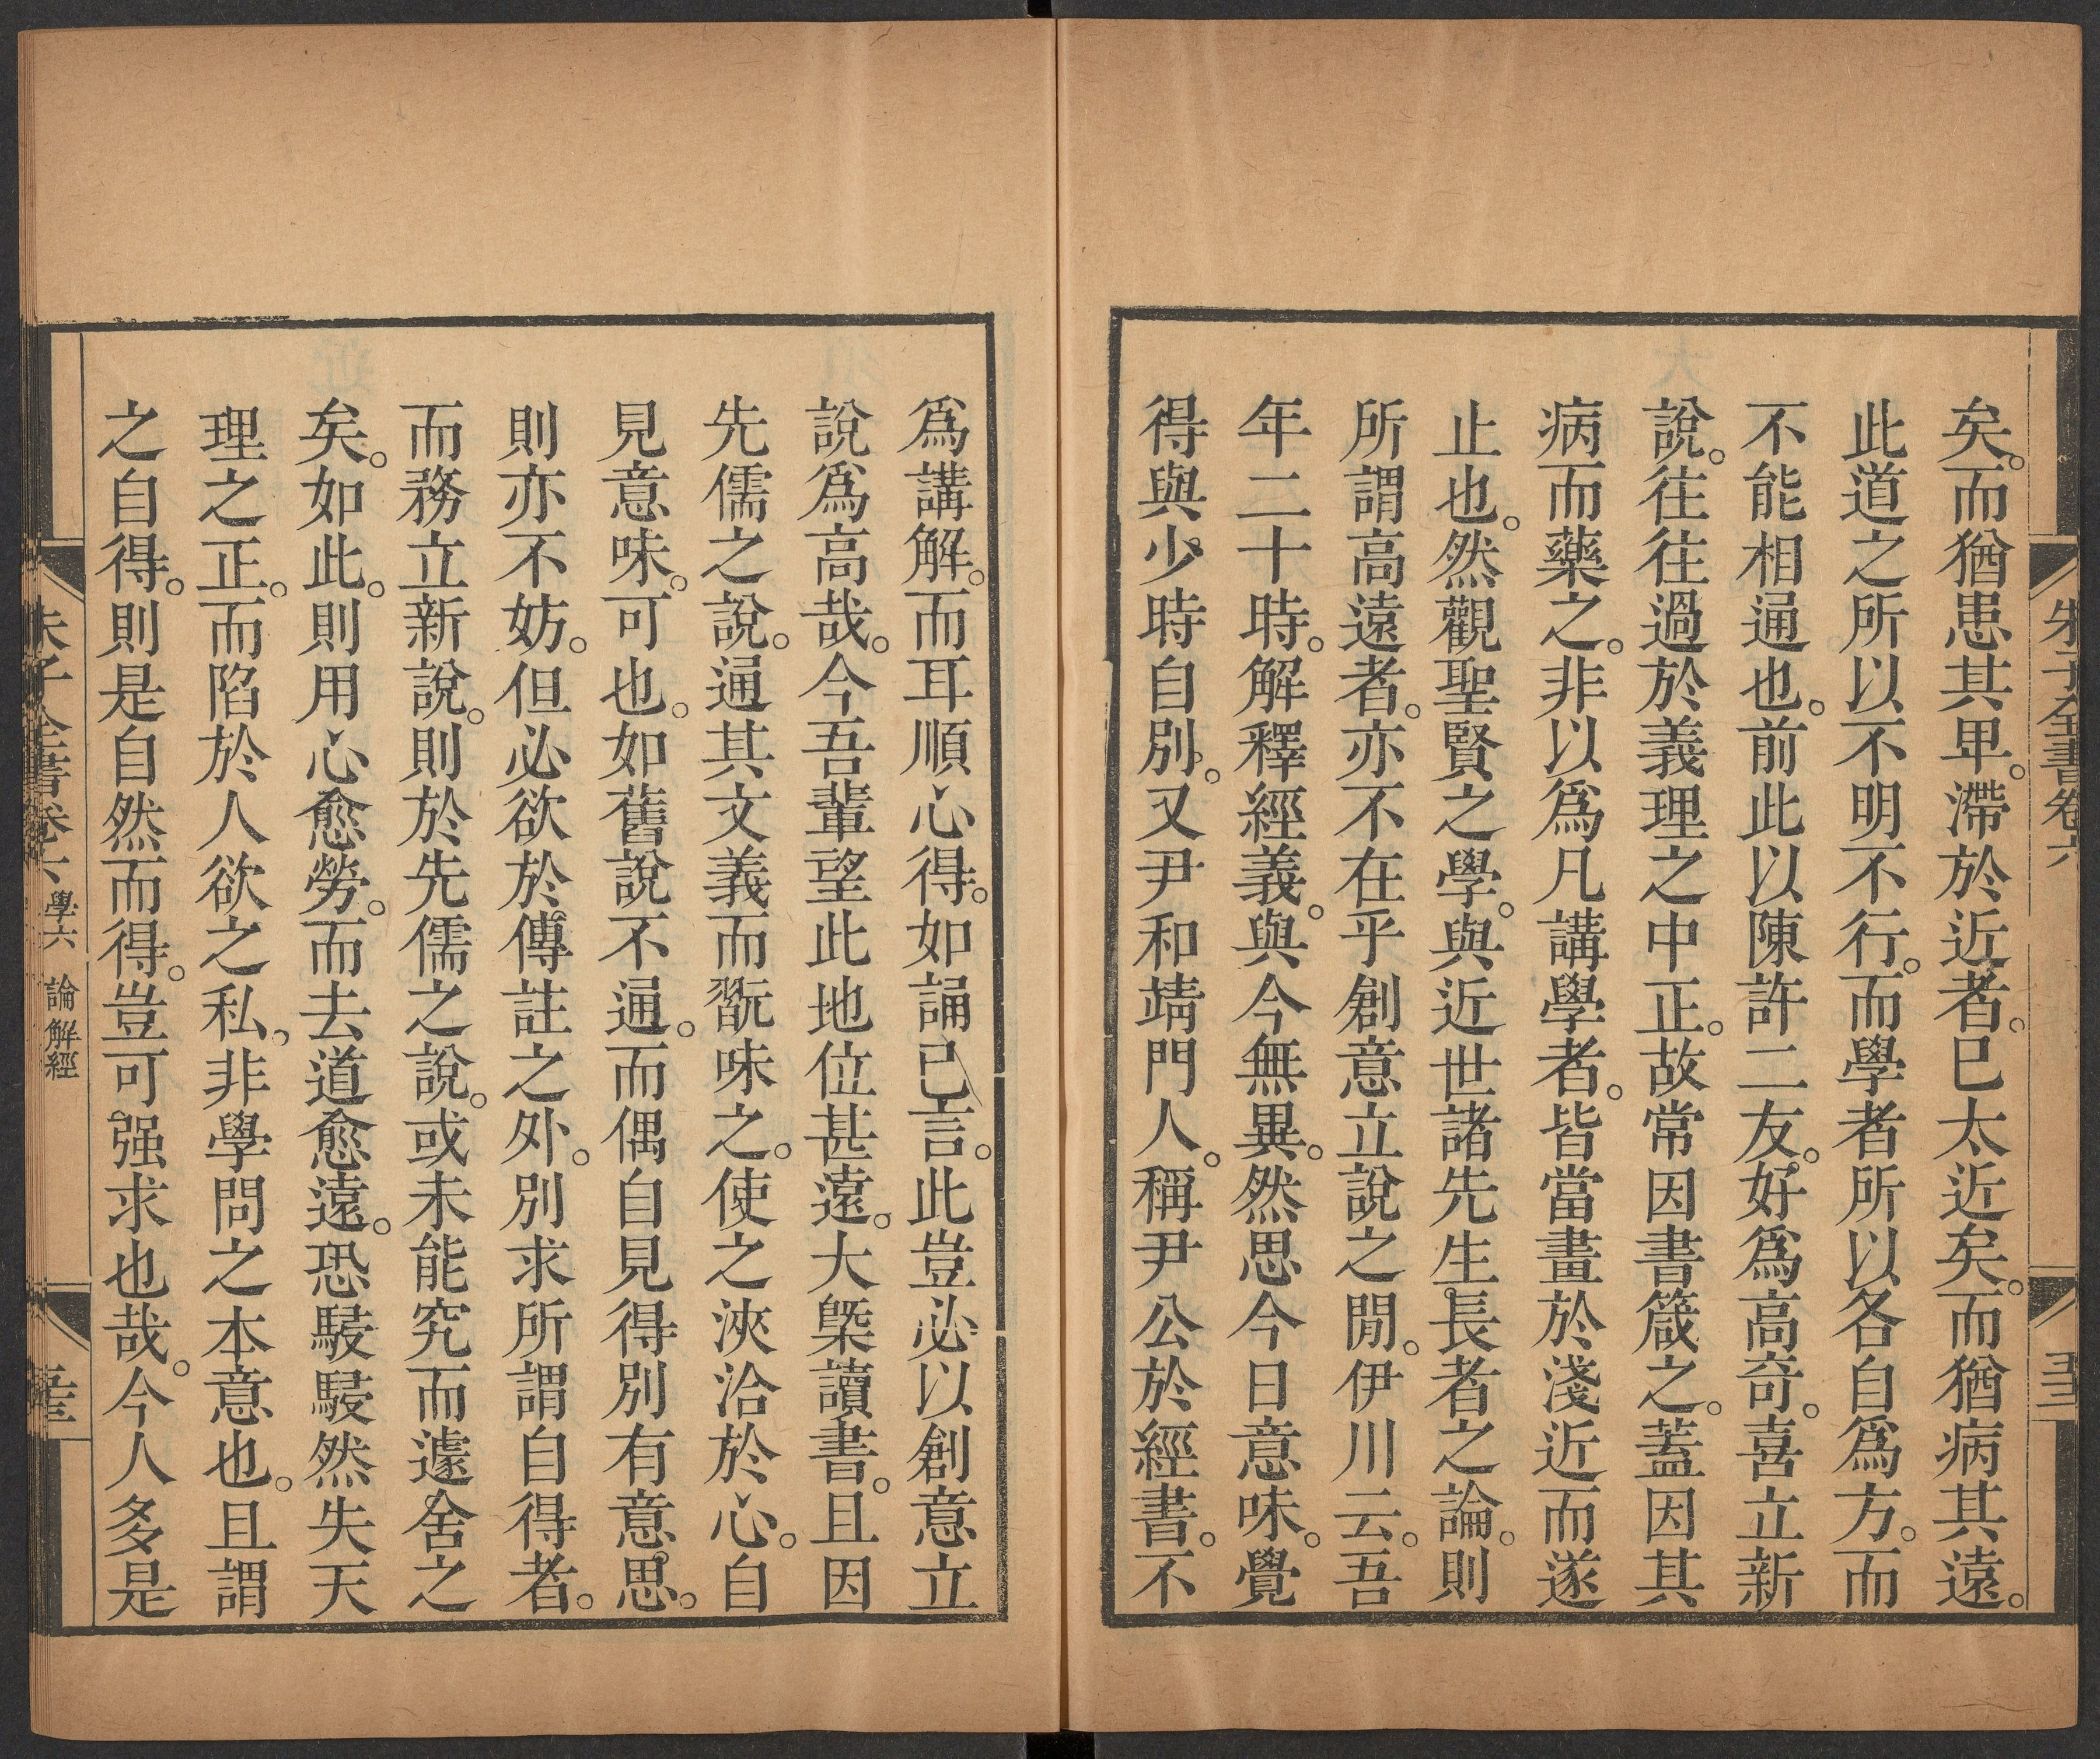 矣。而猶患其卑。滯於近者。已太近矣。而猶病其遠。
此道之所以不明不行。而學者所以各自爲方。而
不能相通也。前此以陳許二友。好爲高奇。喜立新
說。往往過於義理之中正。故常因書箴之。蓋因其
病而藥之。非以爲凡講學者。皆當畫於淺近而遂
止也。然觀聖賢之學。與近世諸先生長者之論。則
所謂高遠者。亦不在乎創意立說之閒。伊川云。吾
年二十時。解釋經義。與今無異。然思今日意味。覺
得與少時自別。又尹和靖門人。稱尹公於經書。不
朱子全書卷六
爲講解。而耳順心得。如誦己言。此豈必以創意立
說爲高哉。今吾輩望此地位甚遠。大槩讀書。且因
先儒之說。通其文義而翫味之。使之浹洽於心。自
見意味。可也。如舊說不通。而偶自見得別有意思。
則亦不妨。但必欲於傳註之外。別求所謂自得者。
而務立新說。則於先儒之說。或未能究而遽舍之
矣。如此。則用心愈勞。而去道愈遠。恐駸駸然失天
理之正。而陷於人欲之私。非學問之本意也。且謂
之自得。則是自然而得。豈可强求也哉。今人多是
朱子全書卷六 學六 論解經